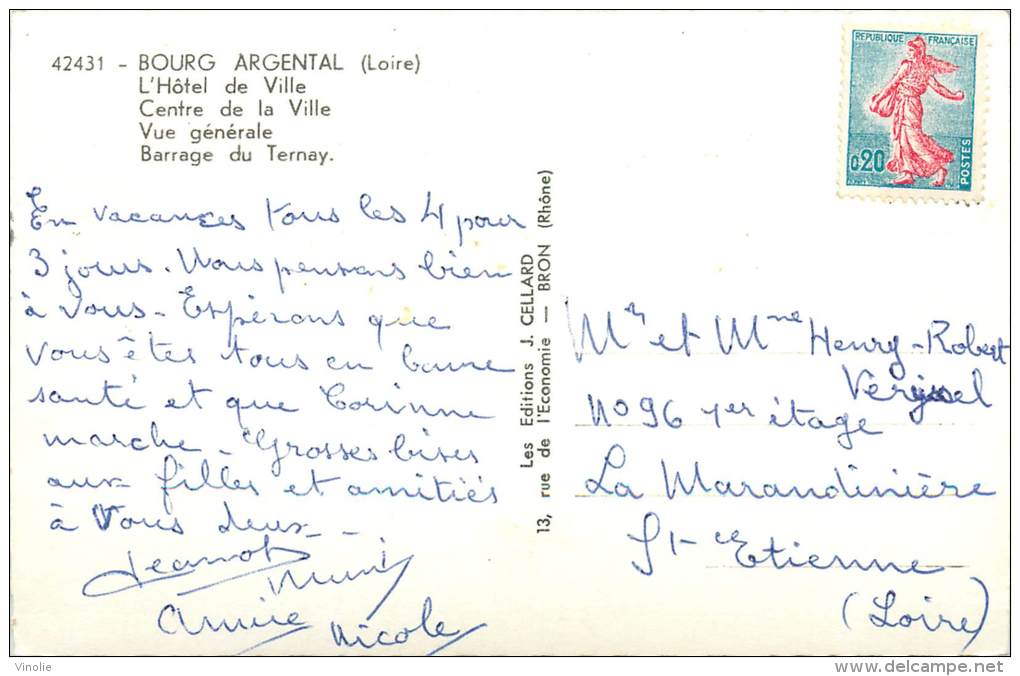 42431 - BOURG ARGENTAL (Loire)
L'Hôtel de Ville
Centre de la Ville
Vue générale
Barrage du Ternay.
En vacances tous les 4 pour
3 jours. Nous pensons bien
à vous - Espérons que
vous êtes tous en bonne
santé et que Corinne
marche. Grosses bises
aux filles et amitiés
à vous deux -
Jeannot
Mimi
Nicole
Les Editions J. CELLARD
13, rue de l'Economie — BRON (Rhône)
REPUBLIQUE FRANÇAISE
0,20
POSTES
Mr et Mme Henry-Robert
N° 96 1er étage
La Marandinière
St-Etienne
(Loire)
Vinolie
delcampe.net